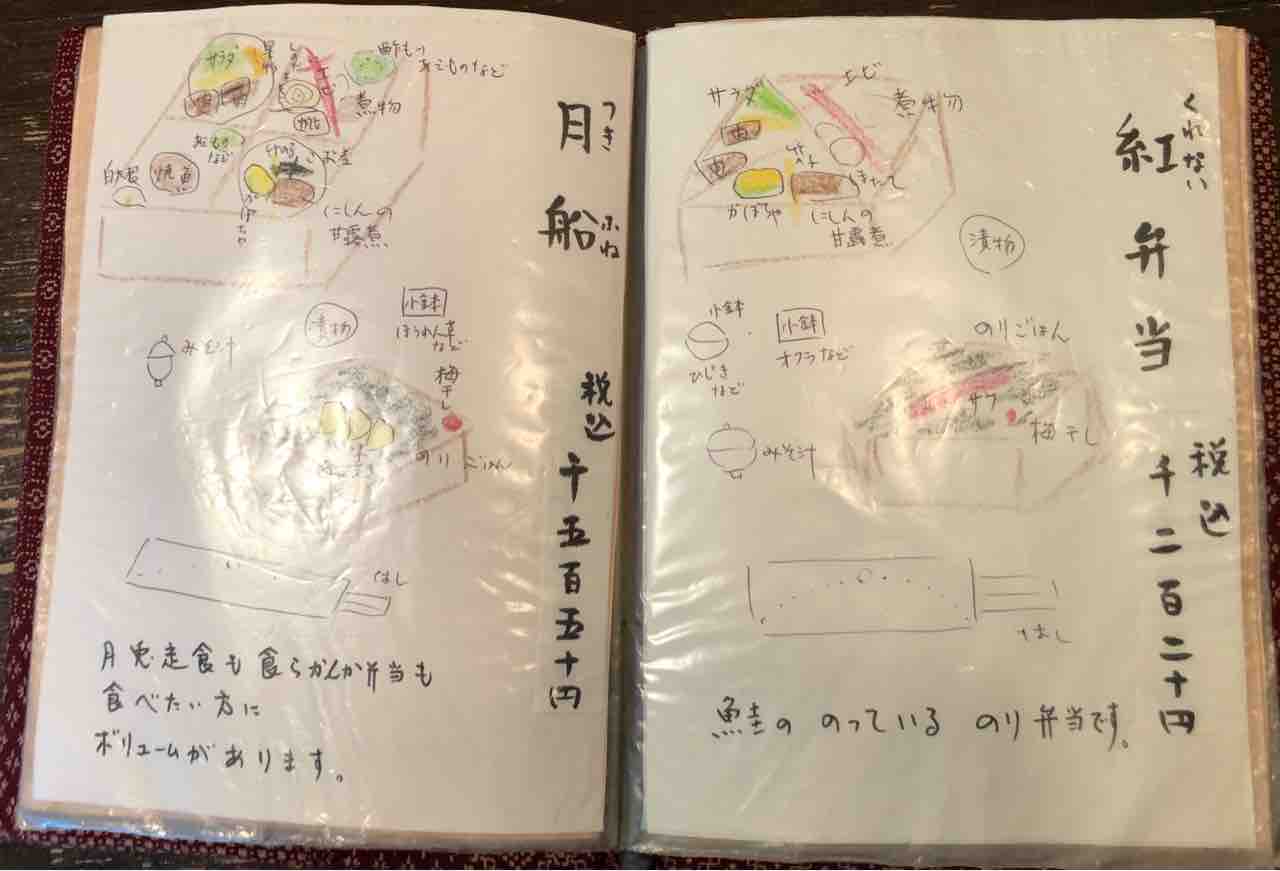 紅弁当
くれない
税込
千二百二十円
サラダ
エビ
煮物
肉
肉
かぼちゃ
にしんの
甘露煮
漬物
小鉢
ひじき
など
小鉢
オクラなど
のりごはん
サケ
梅干し
みそ汁
はし
鮭の のっている のり弁当です。
月船
つき
ふね
税込
千五百五十円
サラダ
酢もの
あえものなど
煮物
白大根
焼魚
かぼちゃ
にしんの
甘露煮
漬物
小鉢
ほうれん草
など
みそ汁
梅干し
のりごはん
はし
月兎定食も食らかんか弁当も
食べたい方に
ボリュームがあります。